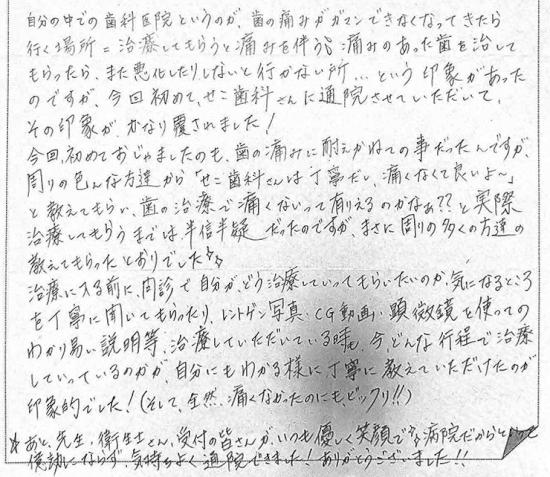 自分の中での歯科医院というのが、歯の痛みがガマンできなくなってきたら
行く場所=治療してもらうと痛みを伴う、痛みのあった歯を治して
もらったら、また悪化したりしないと行かない所…という印象があった
のですが、今回初めて、せこ歯科さんに通院させていただいて、
その印象が、かなり覆されました!
今回、初めておじゃましたのも、歯の痛みに耐えかねての事だったんですが、
周りの色んな方達から「せこ歯科さんは丁寧だし、痛くなくて良いよ〜」
と教えてもらい、歯の治療で痛くないって有りえるのかなぁ??と実際
治療してもらうまでは、半信半疑だったのですが、まさに周りの多くの方達の
教えてもらったとおりでした☆
治療に入る前に、問診で自分が、どう治療していってもらいたいのか、気になるところ
を丁寧に聞いてもらったり、レントゲン写真・CG動画・顕微鏡を使っての
わかり易い説明等、治療していただいている時も、今、どんな行程で治療
していっているのかが、自分にもわかる様に丁寧に教えていただけたのが
印象的でした!(そして、全然、痛くなかったのにも、ビックリ!!)
☆あと、先生、衛生士さん、受付の皆さんが、いつも優しく笑顔で 病院だからといって
億劫にならず、気持ちよく通院できました!ありがとうございました!!